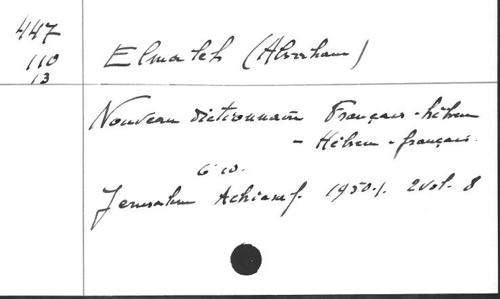 447
110
13
Elmaleh (Abraham)
Nouveau dictionnaire Français-hébreu
- Hébreu-français.
Jerusalem Achiasaf. 1950. 2 vol. 8